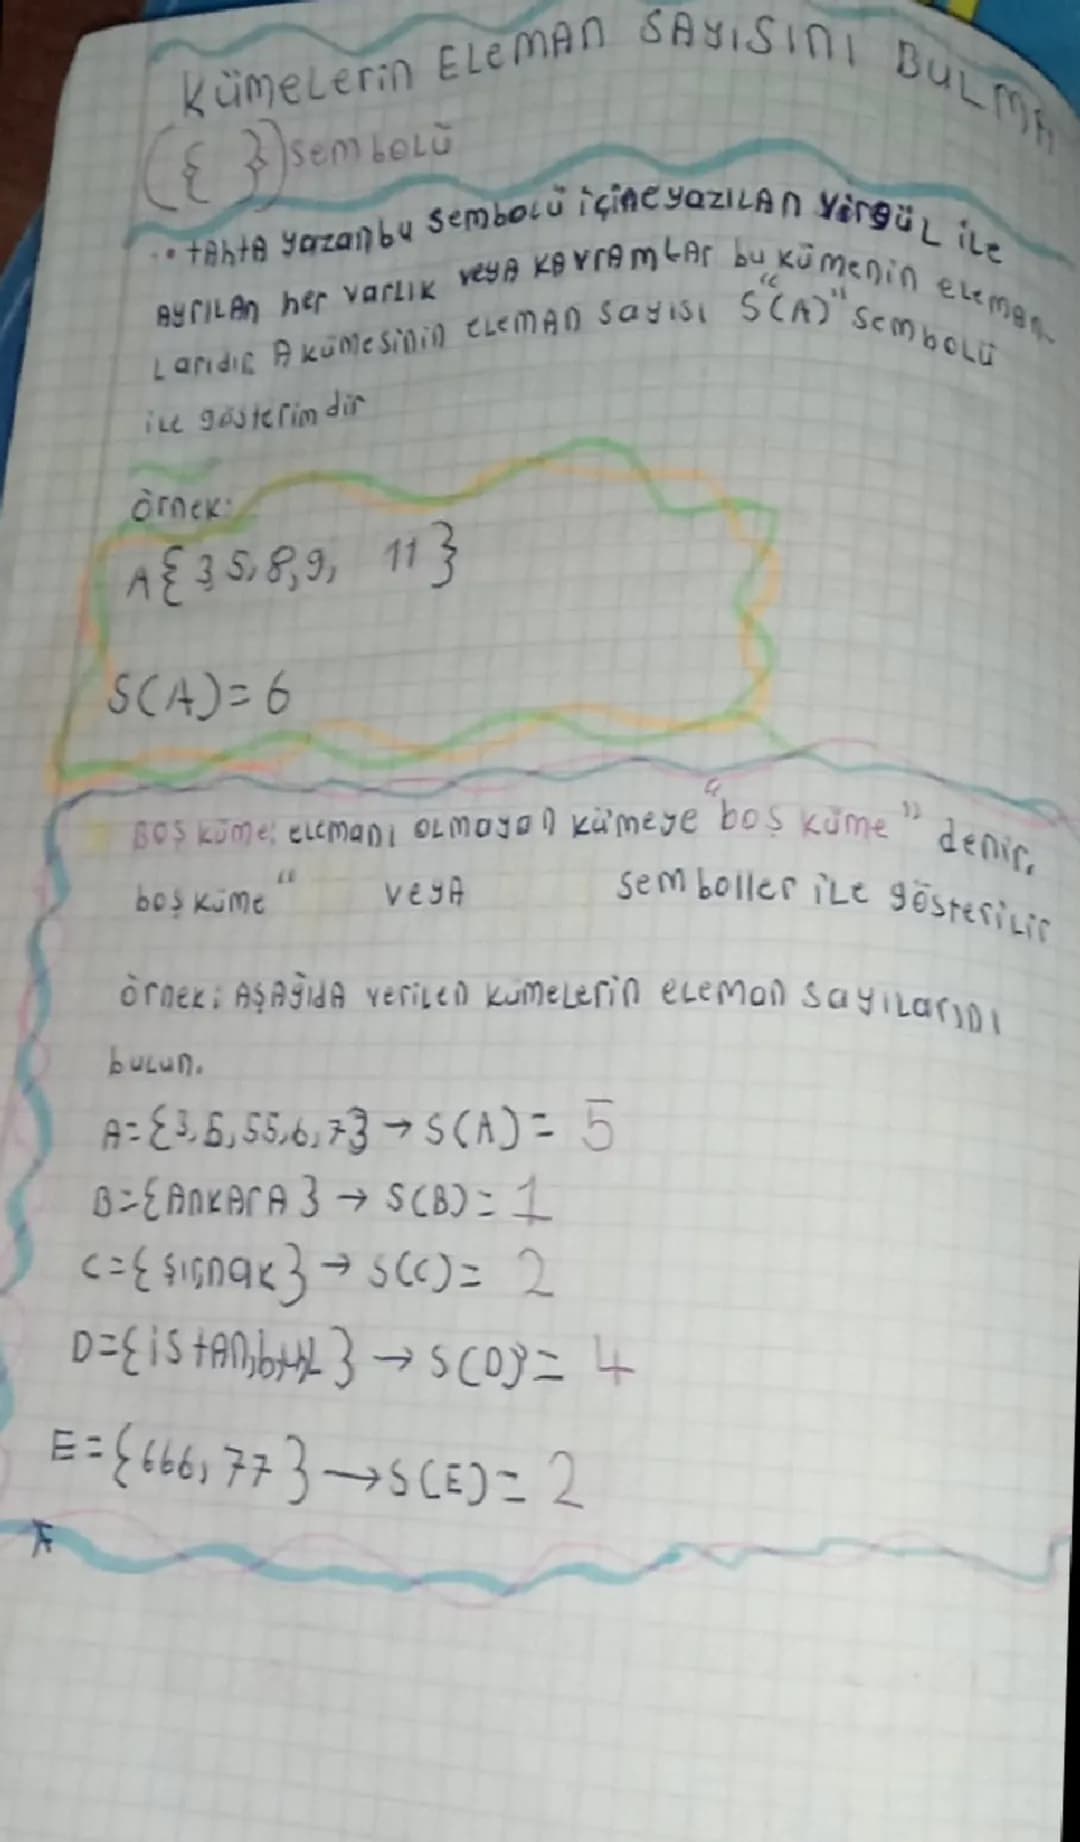 Kümelerin ELEMAN SAYISINI BULMA
({ }) sembolü
• tAhtA yazan bu sembolü içine yazıLAn virgül iLe
AyrıLAn her varlık veyA kavramLAr bu kümenin eleman
Larıdır A kümesinin eleman sayısı "S(A)" sembolü
ile gösterimdir
örnek:
A{3,5,8,9, 11}
S(A)=6
Boş küme: elemanı olmayan kümeye "boş küme" denir.
boş küme " veyA semboller iLe gösterilir
örnek: AşAğıdA verilen kümelerin eleman sayılarını
bulun.
A={3,5,55,6,7} → S(A)= 5
B={AnkArA} → S(B)= 1
C={şışnak} → S(C)= 2
D={istAn,b,u,L} → S(D)= 4
E={666,77} → S(E)= 2